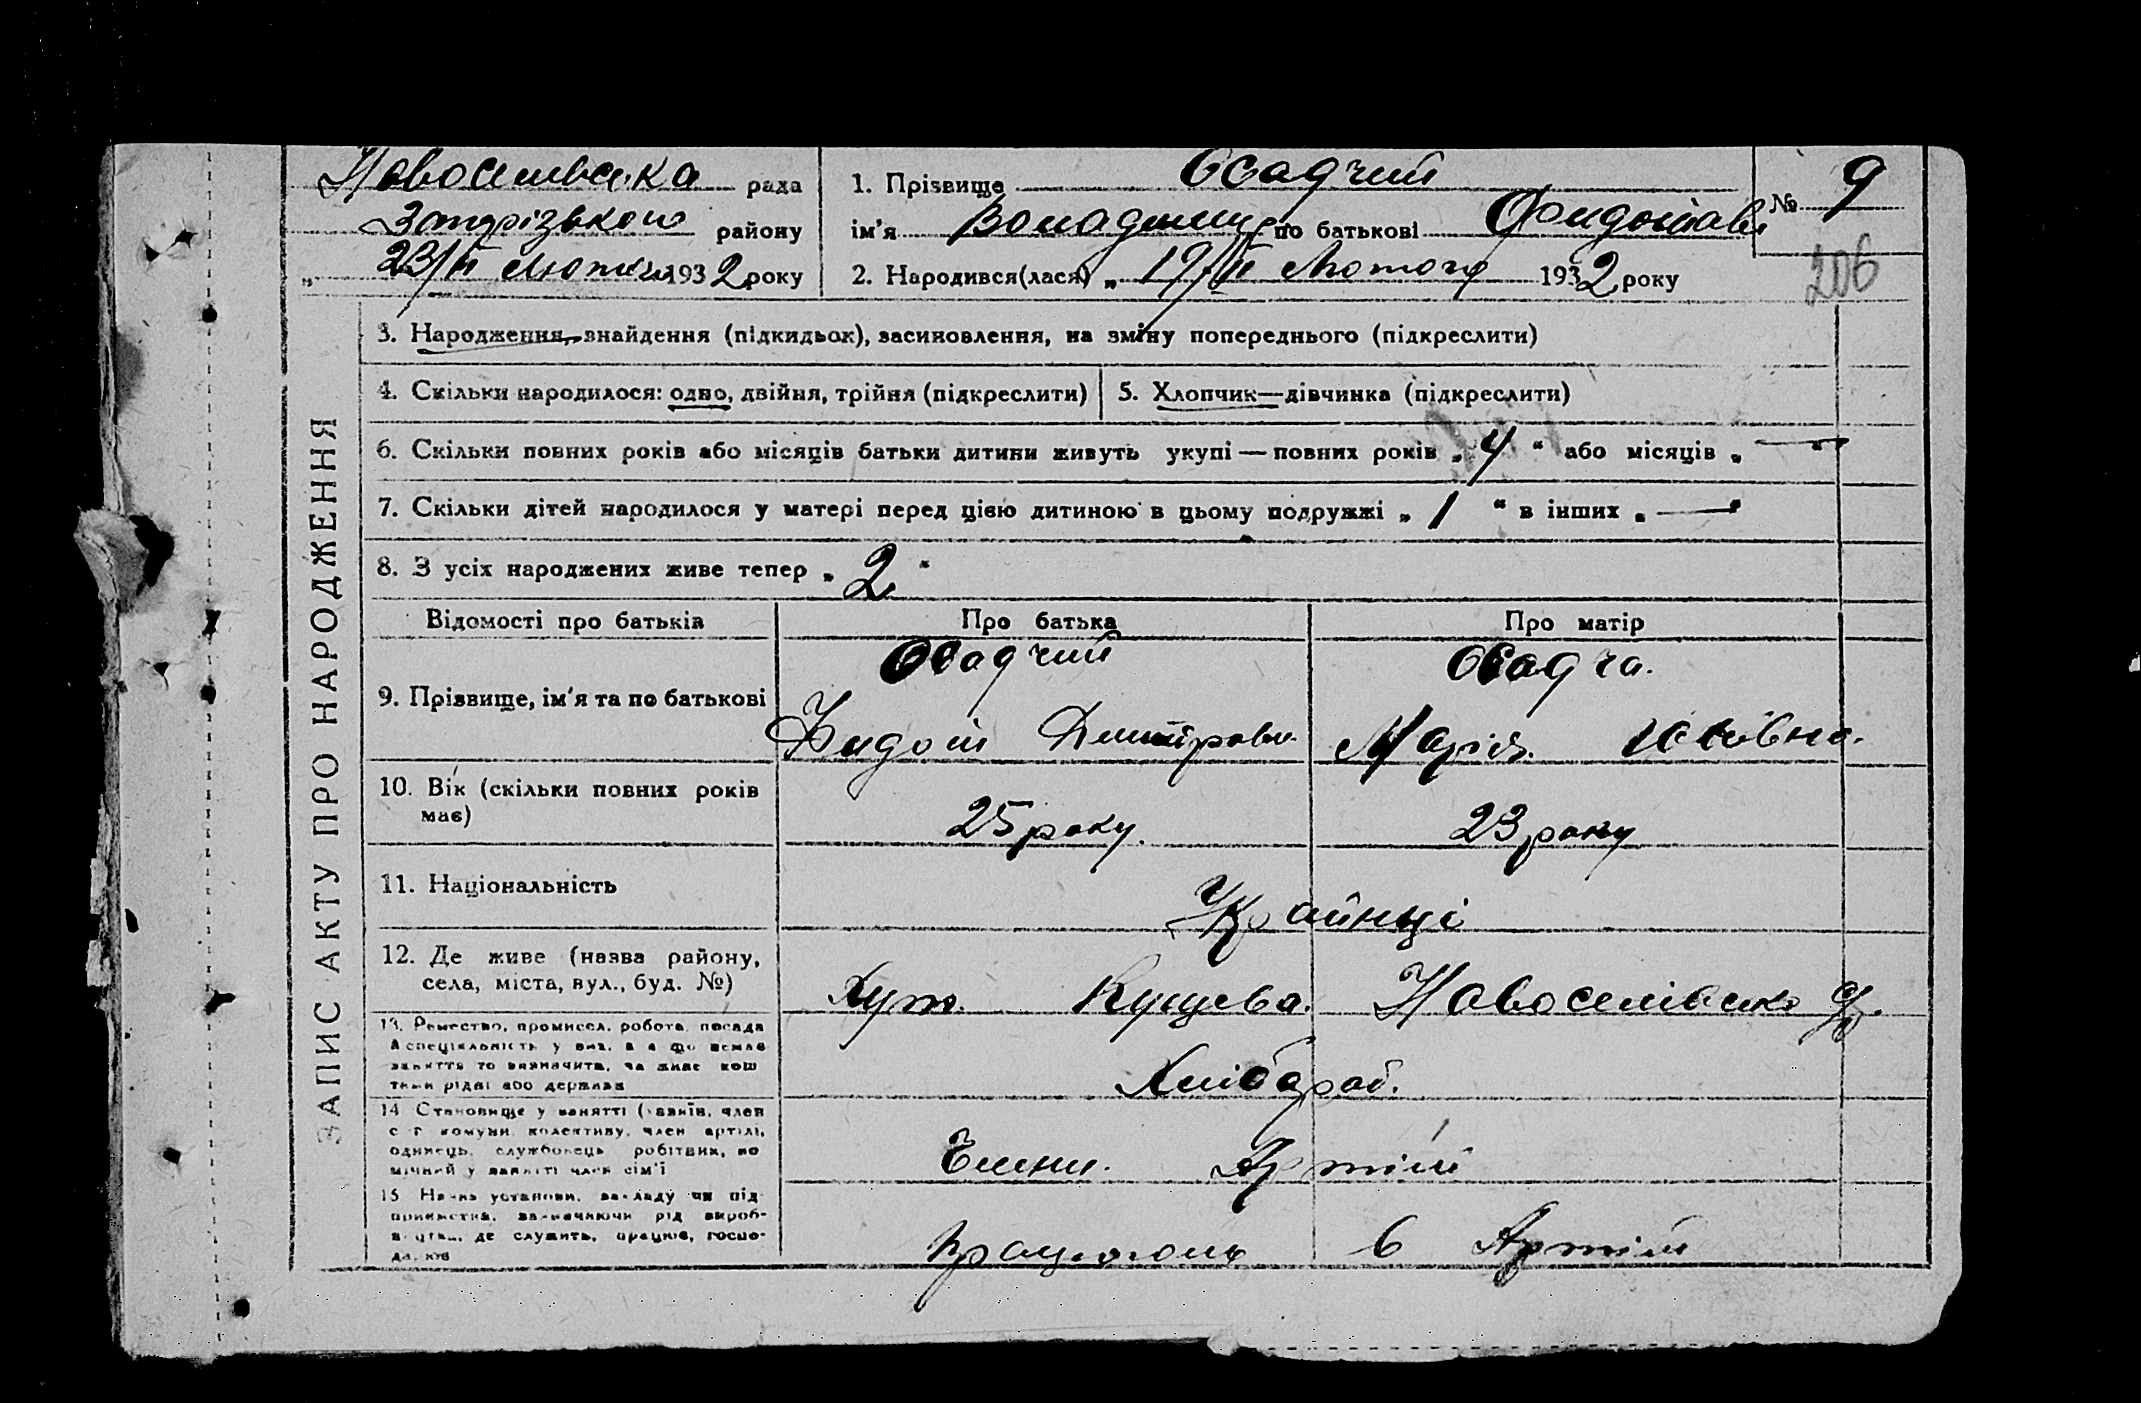 Новоселівська рада
Запорізького району
„ 23/II Лютого 1932 року
1. Прізвище Осадчий
ім'я Володимир по батькові
№ 9
2. Народився(лася) „ 19/II Лютого 1932 року
206
ЗАПИС АКТУ ПРО НАРОДЖЕННЯ
3. Народження, знайдення (підкидьок), засиновлення, на зміну попереднього (підкреслити)
4. Скільки народилося: одно, двійня, трійня (підкреслити)
5. Хлопчик—дівчинка (підкреслити)
6. Скільки повних років або місяців батьки дитини живуть укупі — повних років „ 4 “ або місяців „ — “
7. Скільки дітей народилося у матері перед цією дитиною в цьому подружжі „ 1 “ в інших „ — “
8. З усіх народжених живе тепер „ 2 “
Відомості про батьків
Про батька
Про матір
9. Прізвище, ім'я та по батькові
Осадчий
Осадча.
Марія.
10. Вік (скільки повних років
має)
25 року.
23 року
11. Національність
Українці
12. Де живе (назва району,
села, міста, вул., буд. №)
Хут. Новоселівсько
13. Ремество, промисел, робота, посада
й спеціяльність у них, а
заняття то визначити, чи живе кош
тами рідні або держави
Хлібороб.
14. Становище у занятті (хазяїн, член
с г комуни, колективу, член артілі,
одинець, службовець, робітник, по
мічний у занятті член сім'ї
Члени. Артілі
15. Назва установи, закладу чи під-
приємства, зазначаючи рід вироб-
де служить, працює, госпо-
Працюють в Артілі